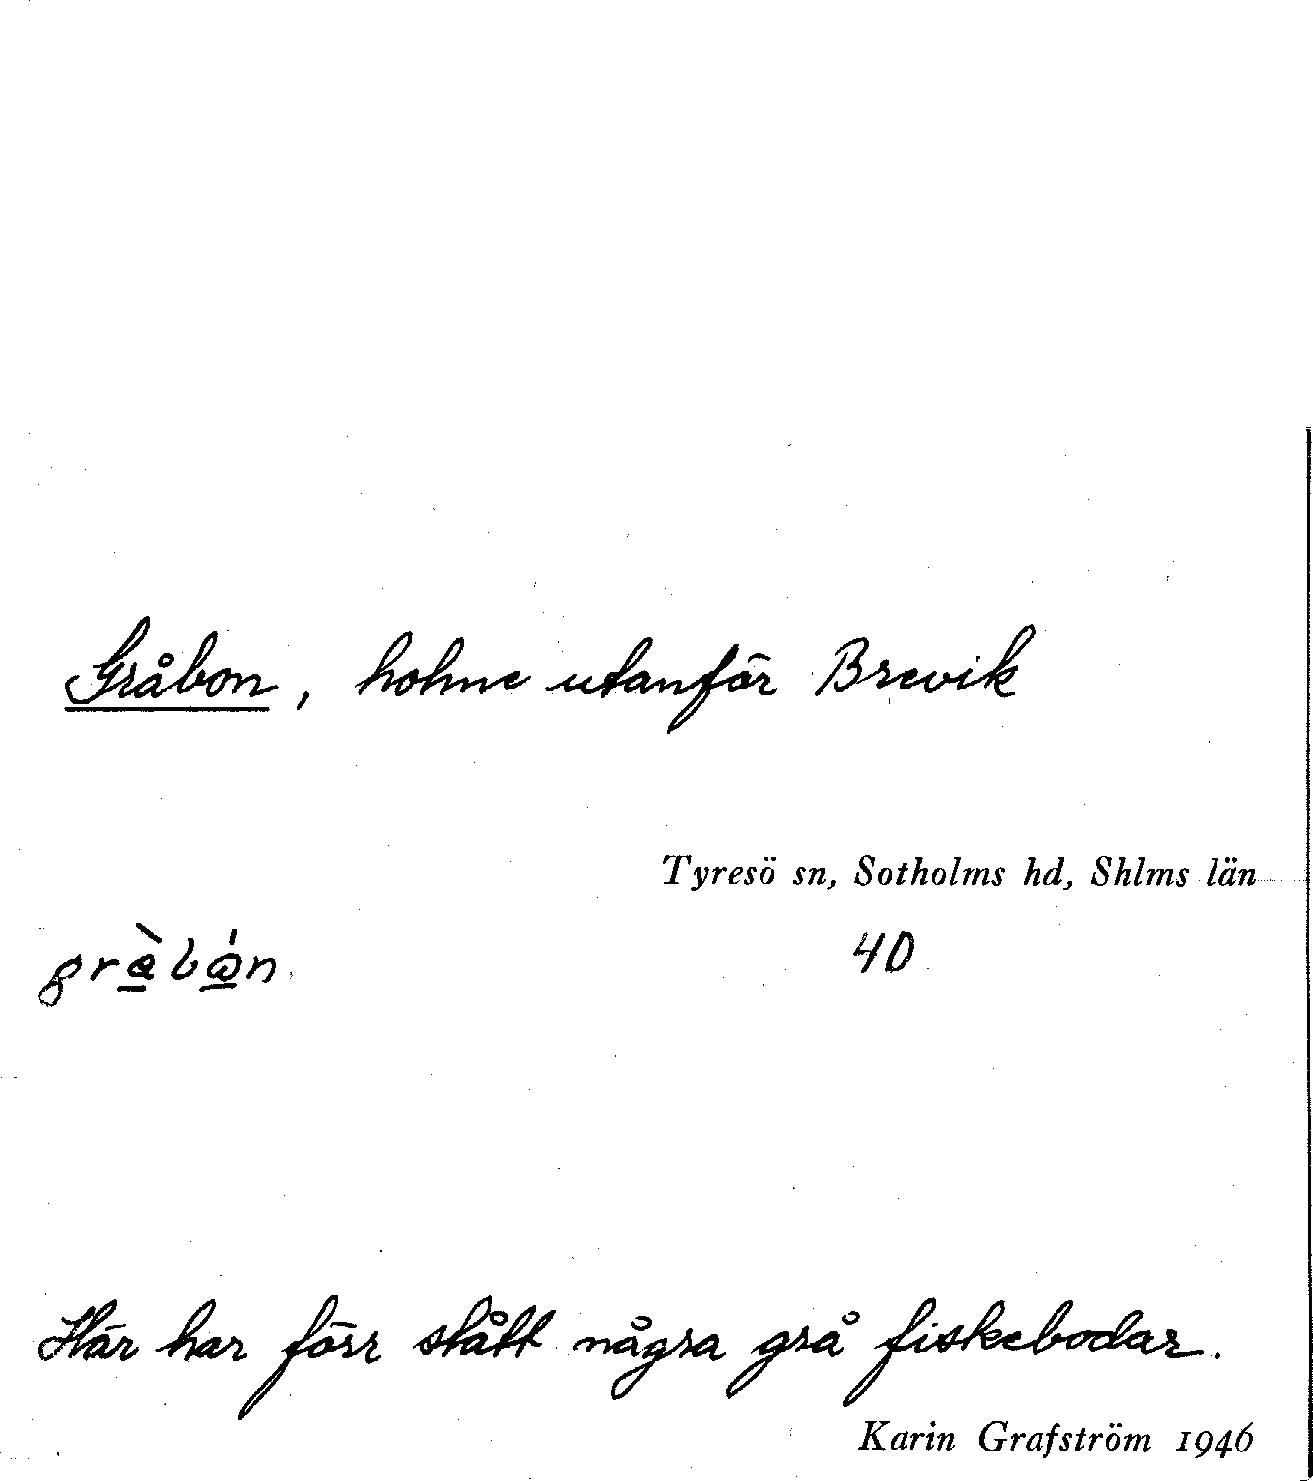 Gråbon, holme utanför Brevik
Tyresö sn, Sotholms hd, Shlms län
40
Här har förr stått några grå fiskebodar.
Karin Grafström 1946